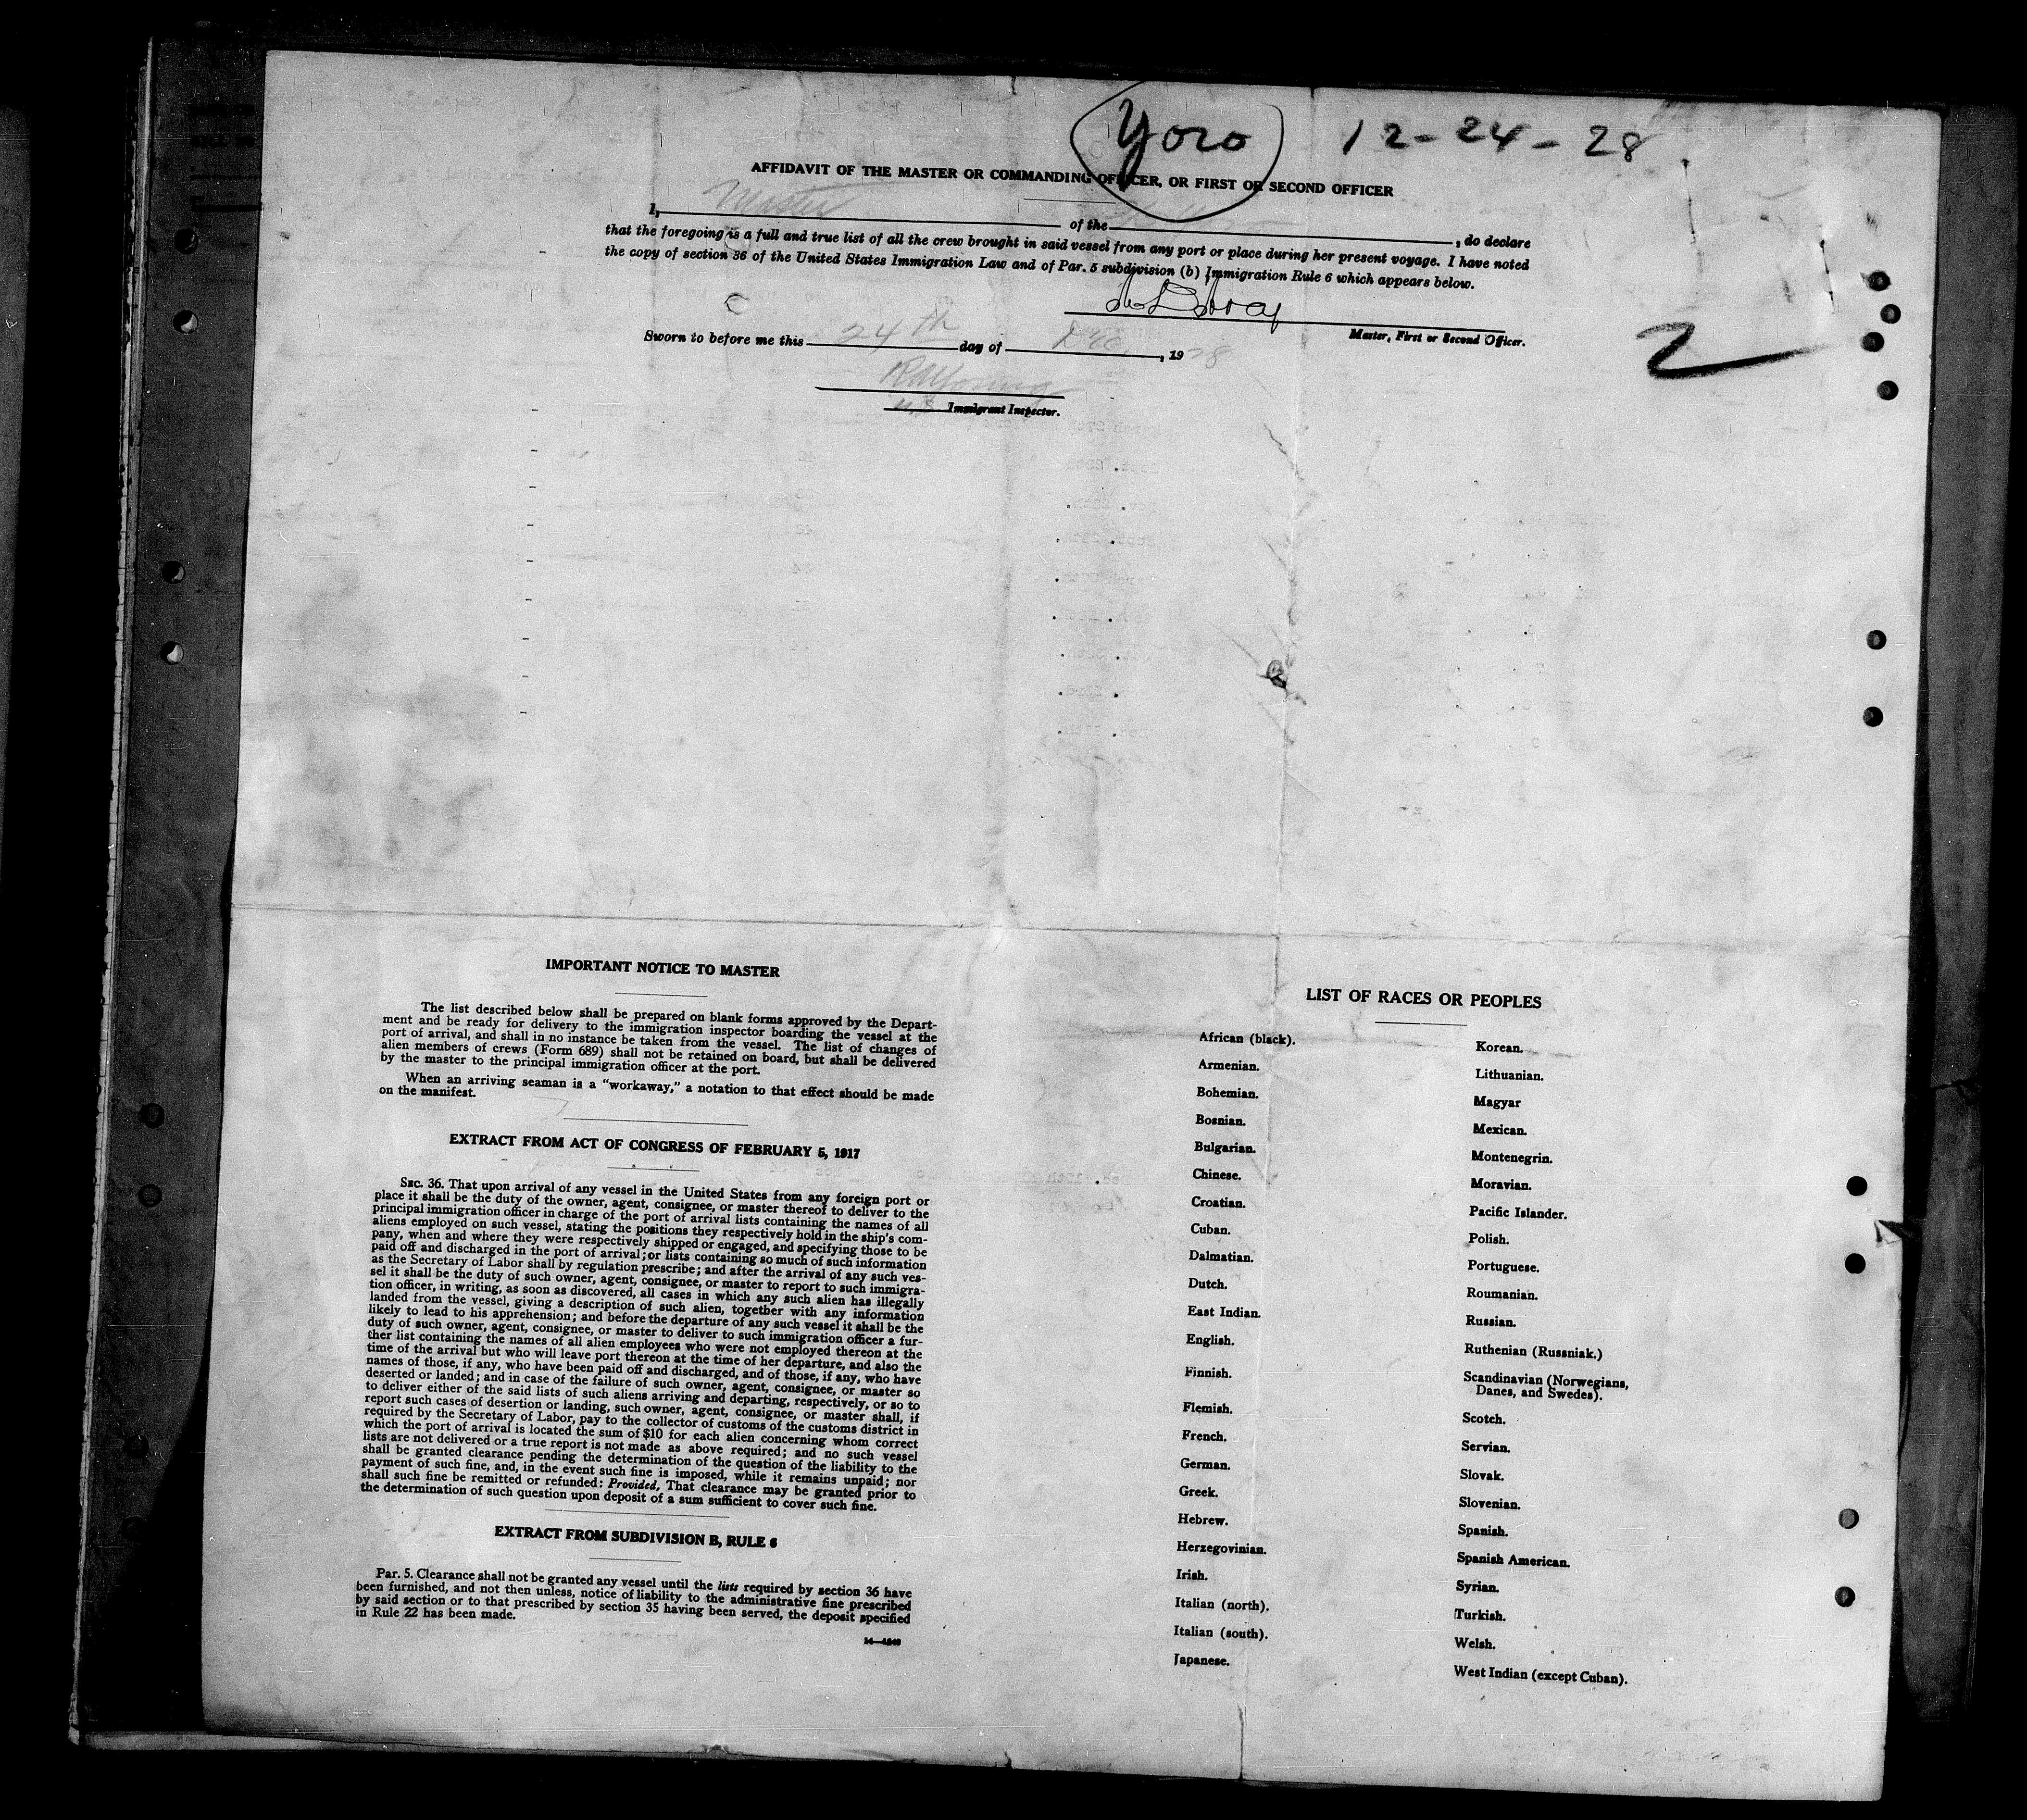 Yoro 12-24-28
AFFIDAVIT OF THE MASTER OR COMMANDING OFFICER, OR FIRST OR SECOND OFFICER
I, Master of the , do declare
that the foregoing is a full and true list of all the crew brought in said vessel from any port or place during her present voyage. I have noted
the copy of section 36 of the United States Immigration Law and of Par. 5 subdivision (b) Immigration Rule 6 which appears below.
Master, First or Second Officer.
2
Sworn to before me this 24th day of Dec, 1928
Immigrant Inspector.
IMPORTANT NOTICE TO MASTER
The list described below shall be prepared on blank forms approved by the Depart-
ment and be ready for delivery to the immigration inspector boarding the vessel at the
port of arrival, and shall in no instance be taken from the vessel. The list of changes of
alien members of crews (Form 689) shall not be retained on board, but shall be delivered
by the master to the principal immigration officer at the port.
When an arriving seaman is a "workaway," a notation to that effect should be made
on the manifest.
EXTRACT FROM ACT OF CONGRESS OF FEBRUARY 5, 1917
SEC. 36. That upon arrival of any vessel in the United States from any foreign port or
place it shall be the duty of the owner, agent, consignee, or master thereof to deliver to the
principal immigration officer in charge of the port of arrival lists containing the names of all
aliens employed on such vessel, stating the positions they respectively hold in the ship's com-
pany, when and where they were respectively shipped or engaged, and specifying those to be
paid off and discharged in the port of arrival; or lists containing so much of such information
as the Secretary of Labor shall by regulation prescribe; and after the arrival of any such ves-
sel it shall be the duty of such owner, agent, consignee, or master to report to such immigra-
tion officer, in writing, as soon as discovered, all cases in which any such alien has illegally
landed from the vessel, giving a description of such alien, together with any information
likely to lead to his apprehension; and before the departure of any such vessel it shall be the
duty of such owner, agent, consignee, or master to deliver to such immigration officer a fur-
ther list containing the names of all alien employees who were not employed thereon at the
time of the arrival but who will leave port thereon at the time of her departure, and also the
names of those, if any, who have been paid off and discharged, and of those, if any, who have
deserted or landed; and in case of the failure of such owner, agent, consignee, or master so
to deliver either of the said lists of such aliens arriving and departing, respectively, or so to
report such cases of desertion or landing, such owner, agent, consignee, or master shall, if
required by the Secretary of Labor, pay to the collector of customs of the customs district in
which the port of arrival is located the sum of $10 for each alien concerning whom correct
lists are not delivered or a true report is not made as above required; and no such vessel
shall be granted clearance pending the determination of the question of the liability to the
payment of such fine, and, in the event such fine is imposed, while it remains unpaid; nor
shall such fine be remitted or refunded: Provided, That clearance may be granted prior to
the determination of such question upon deposit of a sum sufficient to cover such fine.
EXTRACT FROM SUBDIVISION B, RULE 6
Par. 5. Clearance shall not be granted any vessel until the lists required by section 36 have
been furnished, and not then unless, notice of liability to the administrative fine prescribed
by said section or to that prescribed by section 35 having been served, the deposit specified
in Rule 22 has been made.
LIST OF RACES OR PEOPLES
African (black).
Armenian.
Bohemian.
Bosnian.
Bulgarian.
Chinese.
Croatian.
Cuban.
Dalmatian.
Dutch.
East Indian.
English.
Finnish.
Flemish.
French.
German.
Greek.
Hebrew.
Herzegovinian.
Irish.
Italian (north).
Italian (south).
Japanese.
Korean.
Lithuanian.
Magyar
Mexican.
Montenegrin.
Moravian.
Pacific Islander.
Polish.
Portuguese.
Roumanian.
Russian.
Ruthenian (Russniak.)
Scandinavian (Norwegians,
Danes, and Swedes).
Scotch.
Servian.
Slovak.
Slovenian.
Spanish.
Spanish American.
Syrian.
Turkish.
Welsh.
West Indian (except Cuban).